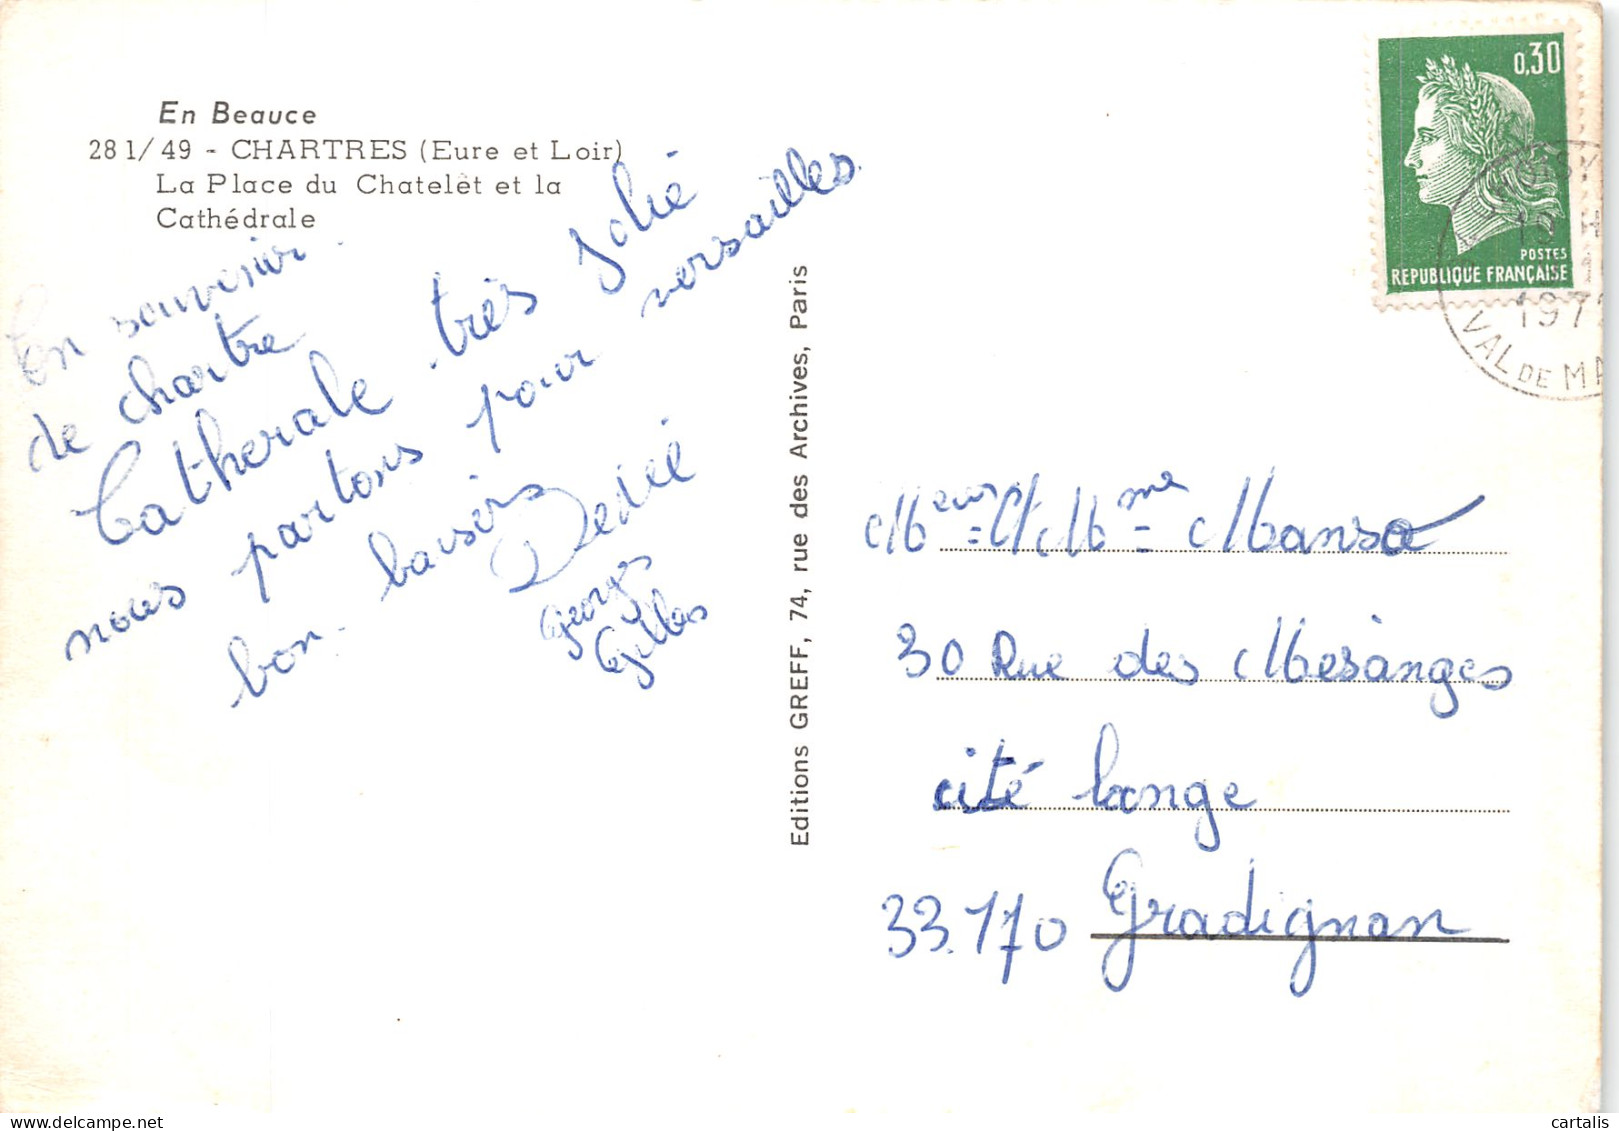 En Beauce
281/49 - CHARTRES (Eure et Loir)
La Place du Chatelêt et la
Cathédrale
En souvenir
de chartre
Catherale très Jolie
nous partons pour versailles
bon baisers
Dedée
Georges
Gilles
Editions GREFF, 74, rue des Archives, Paris
0,30
POSTES
REPUBLIQUE FRANÇAISE
19 H
197
VAL DE MA
Meur et Mme Manso
30 Rue des Mesànges
cité longe
33.170 Gradignan
cartalis